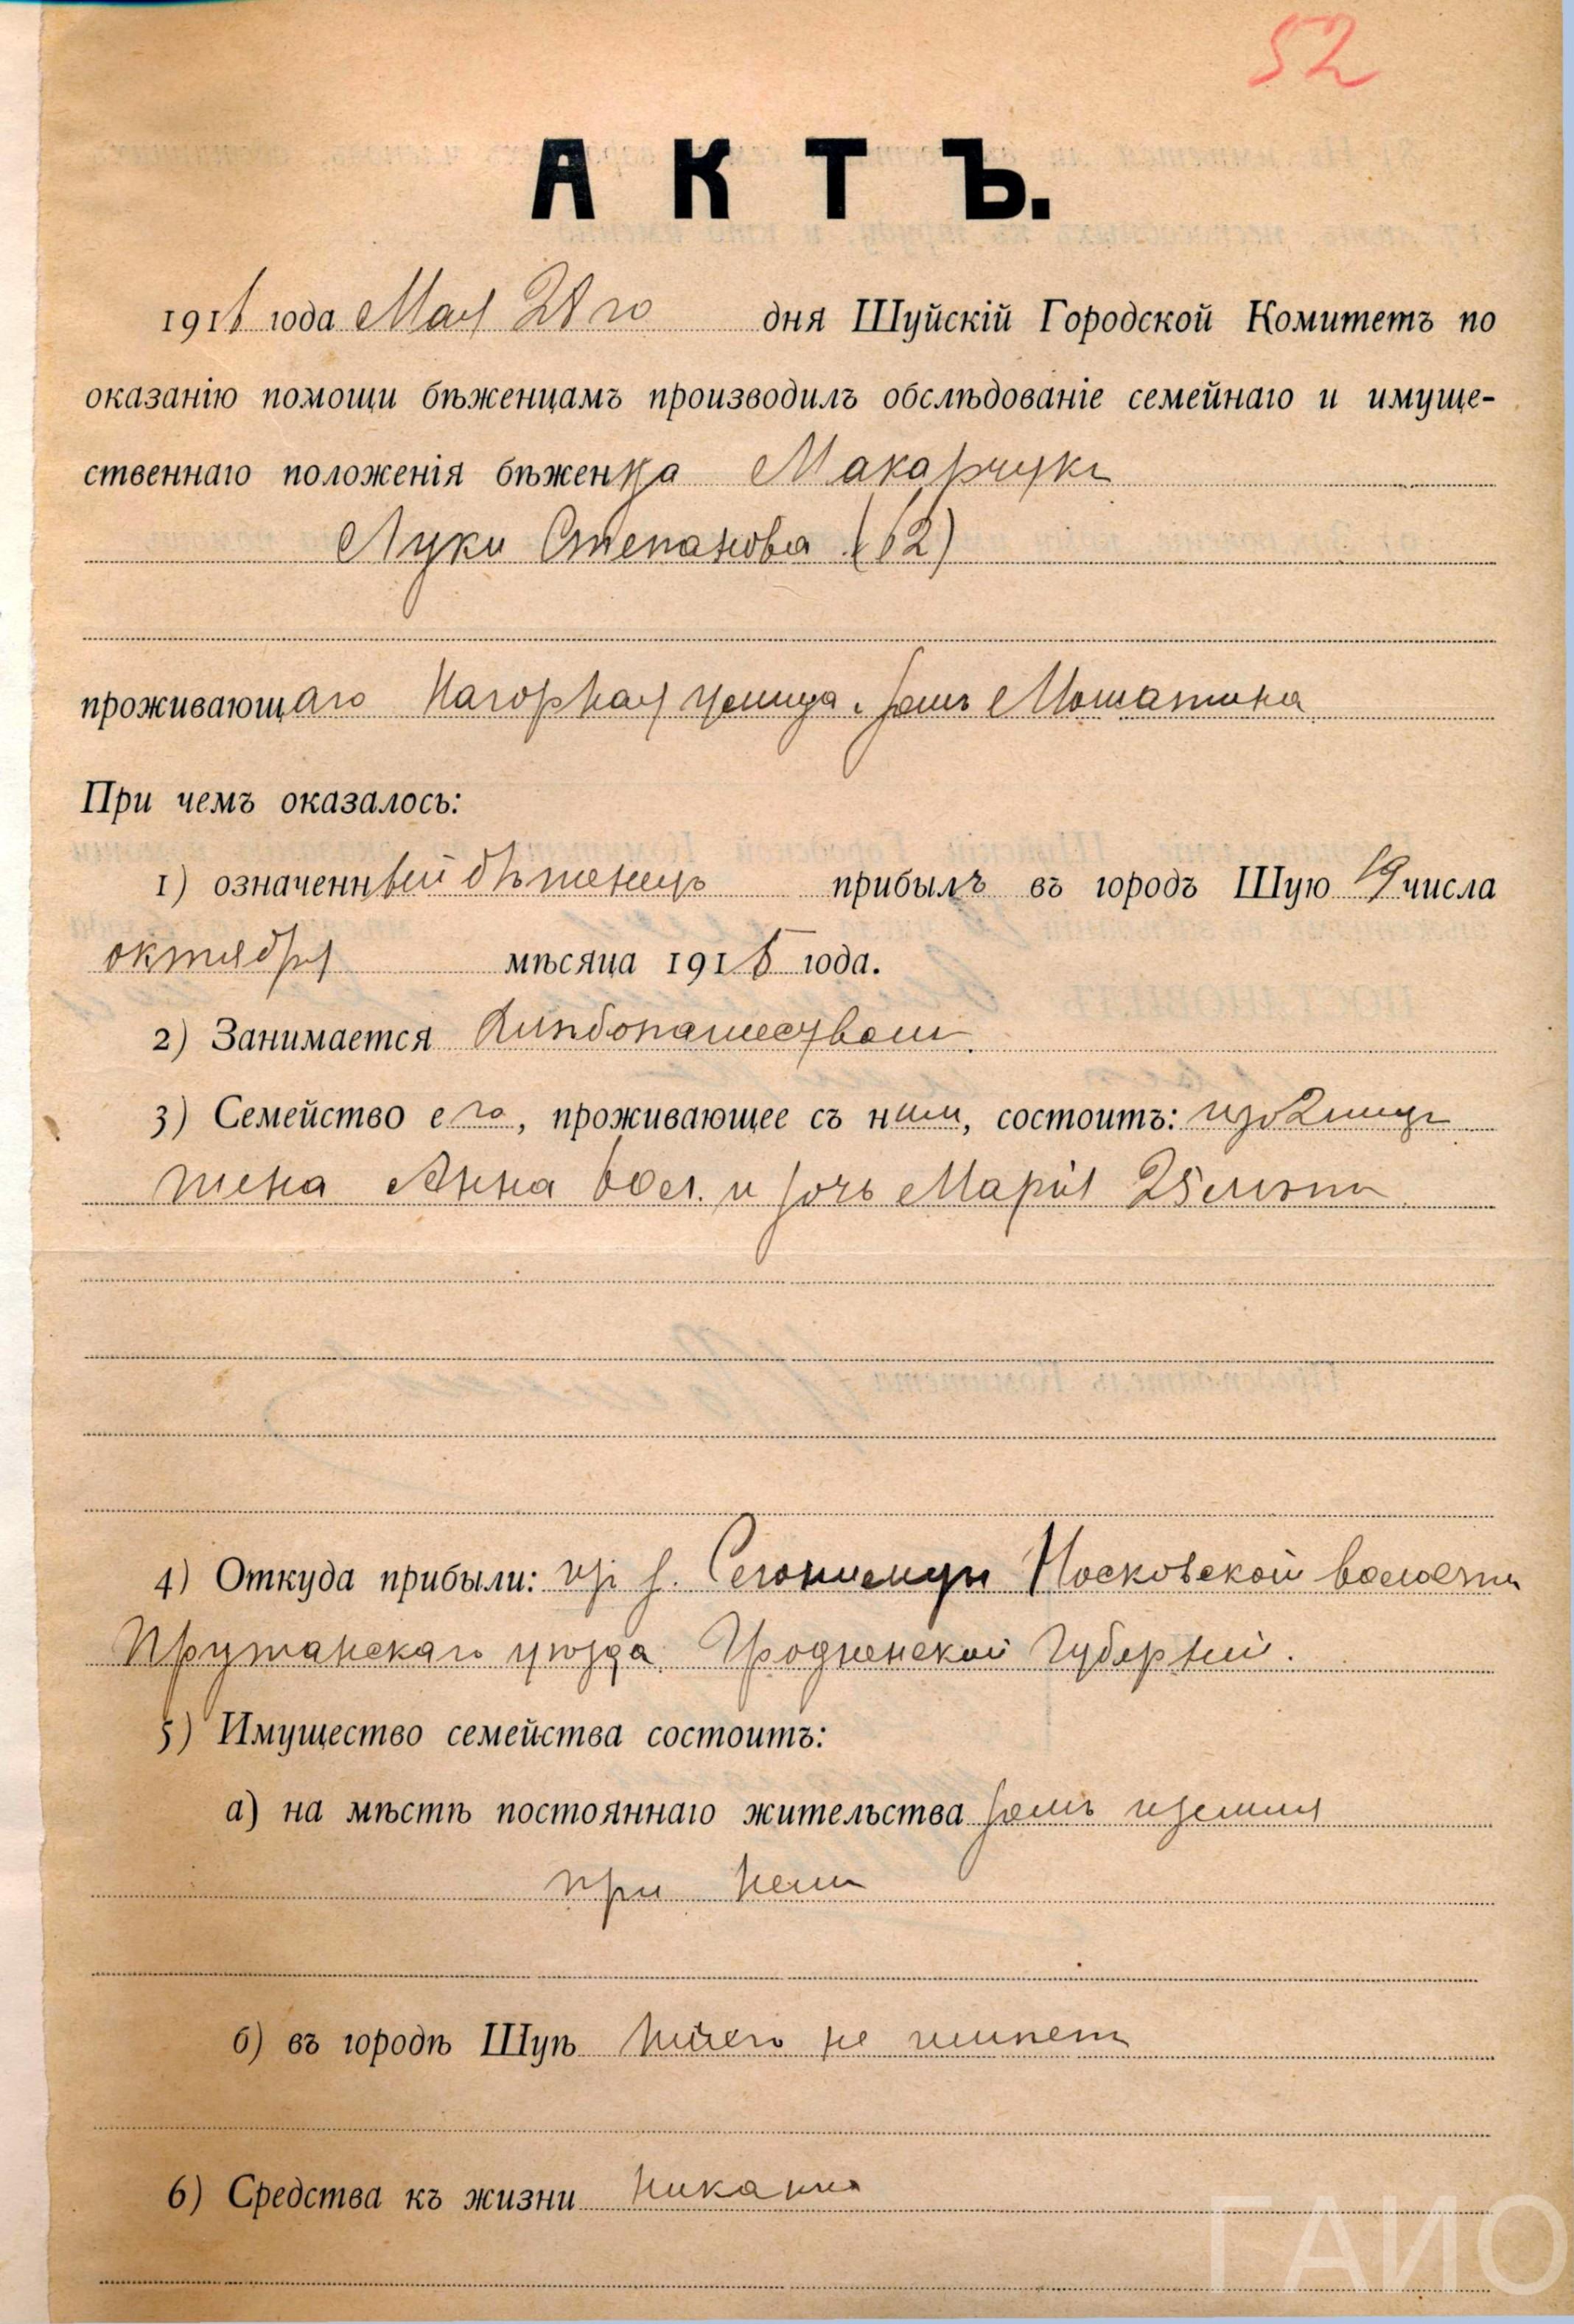 52
АКТЪ.
1916 года Мая 28 го дня Шуйскій Городской Комитетъ по
оказанію помощи бѣженцамъ производилъ обслѣдованіе семейнаго и имуще-
ственнаго положенія бѣженца Макарчука
Луки Степанова (62)
проживающаго Нагорная улица. домъ
При чемъ оказалось:
1) означенный бѣженецъ прибылъ въ городъ Шую 19 числа
октября мѣсяца 1915 года.
2) Занимается Хлѣбопашествомъ.
3) Семейство его, проживающее съ ним, состоитъ: изъ 2 лицъ
жена Анна 60 л. и дочь Марія 25 лѣтъ
4) Откуда прибыли: изъ д. волости
Пружанскаго уѣзда. Гродненской Губерніи.
5) Имущество семейства состоитъ:
а) на мѣстѣ постояннаго жительства домъ и земля
при нем
б) въ городѣ Шуѣ ничего не имѣет
6) Средства къ жизни
ГАИО